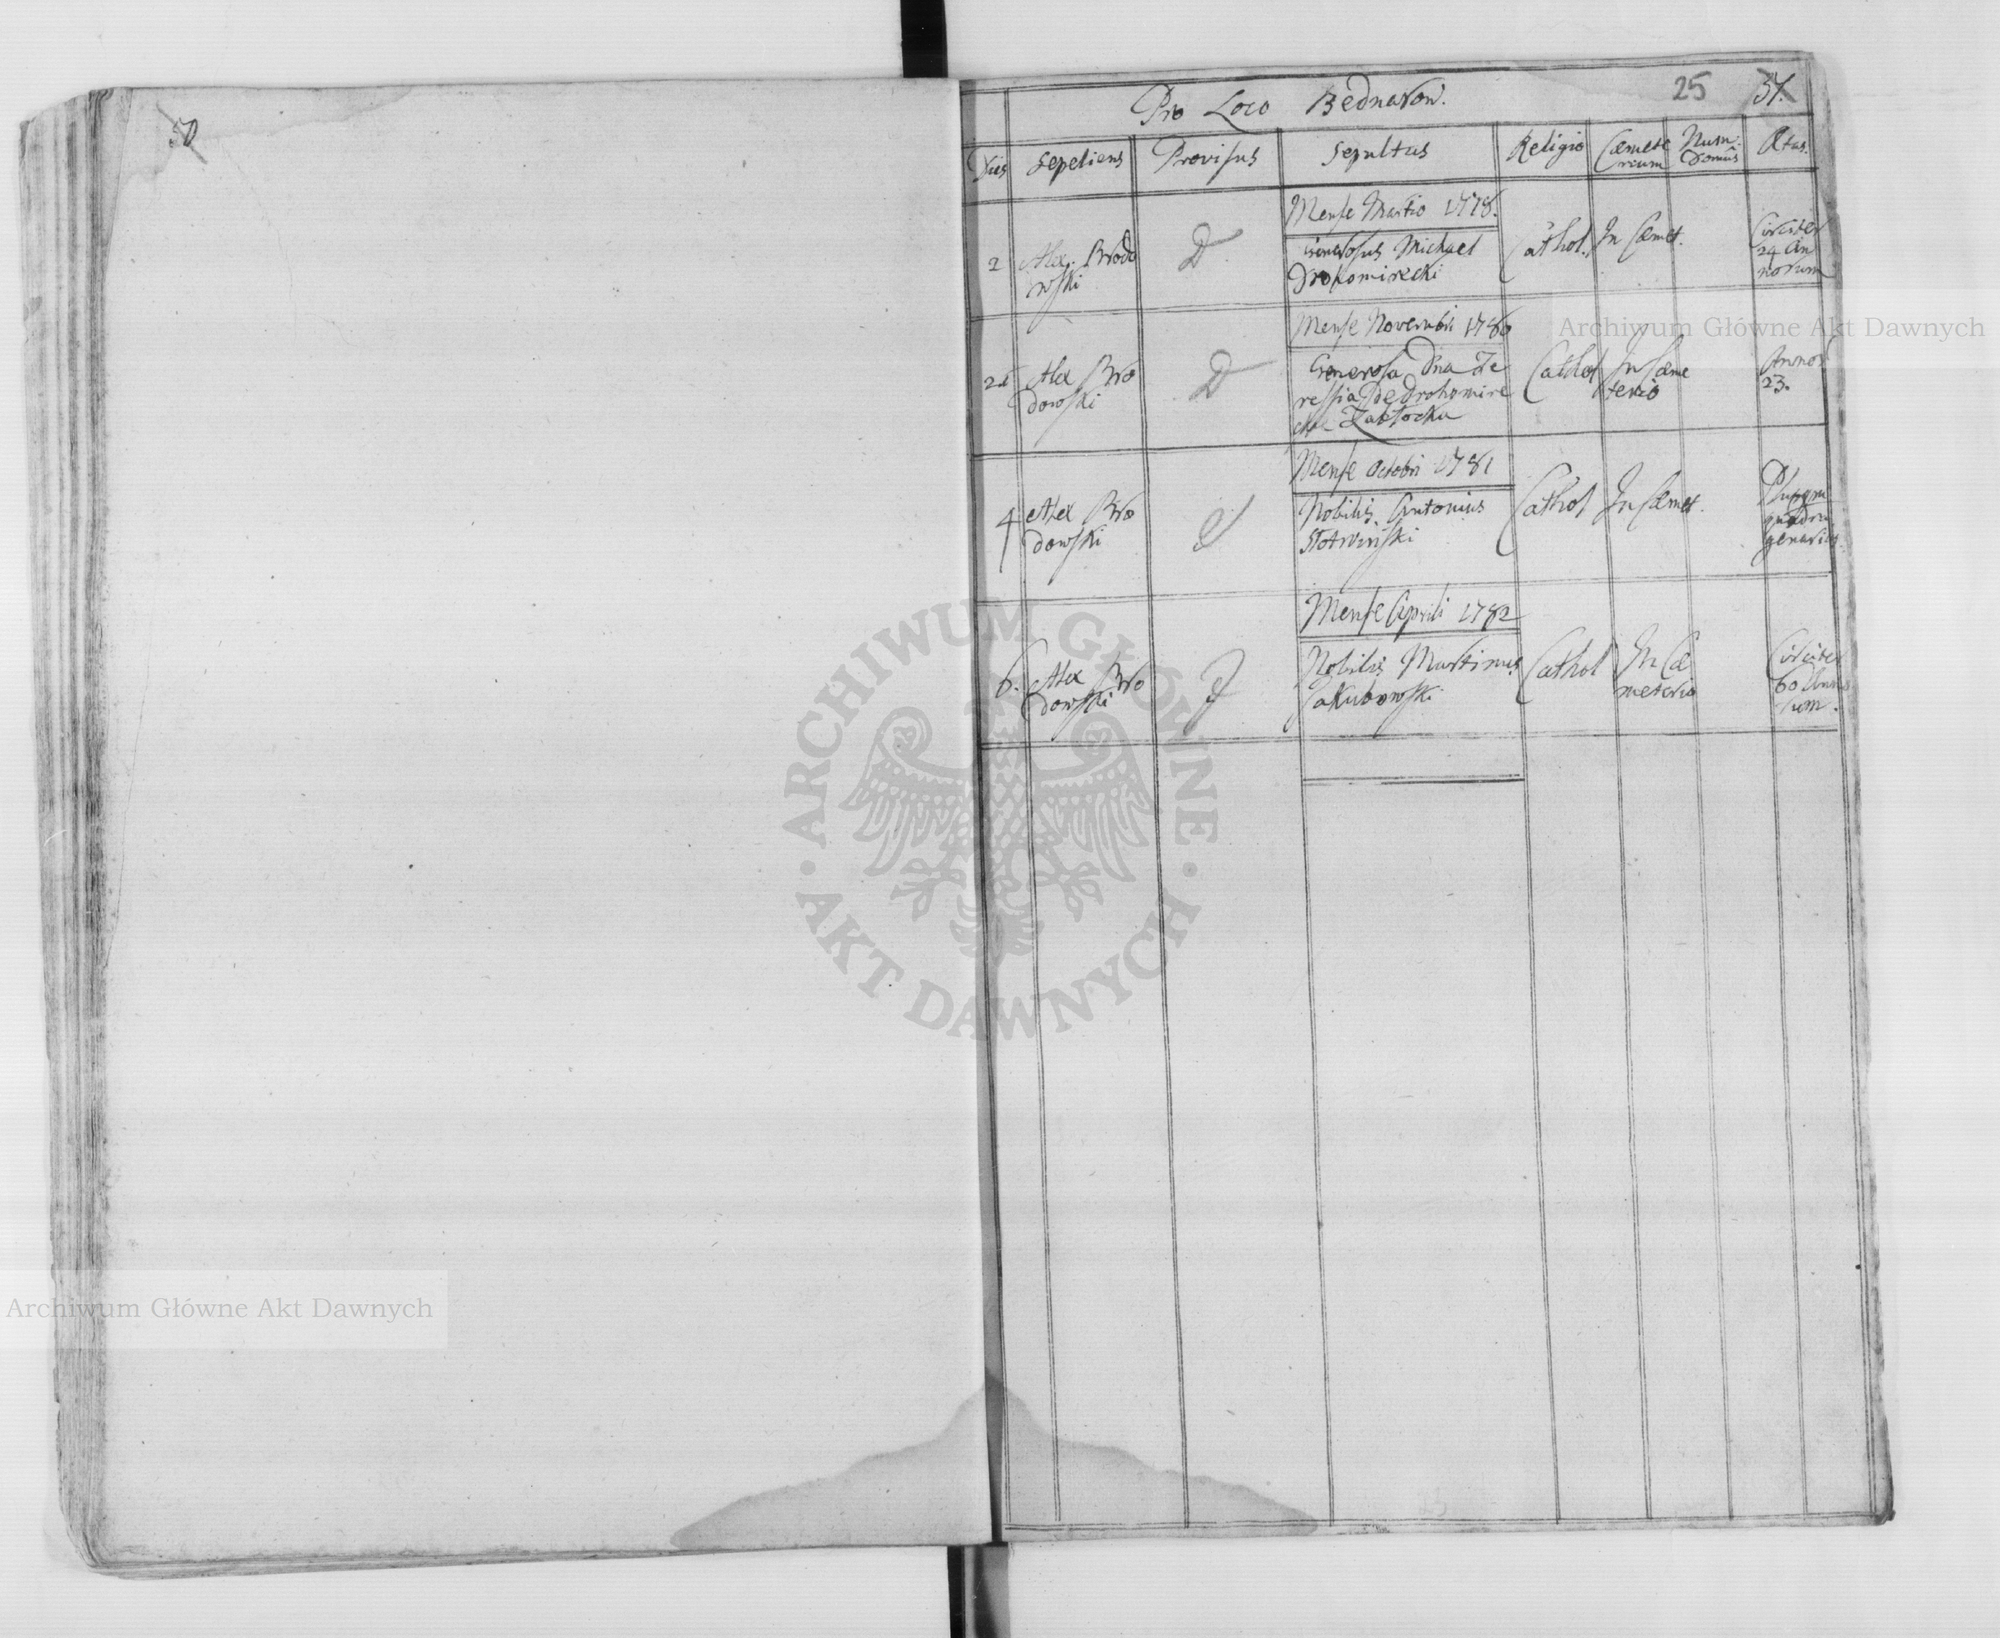 50
25 51.
Pro Loco Bednarow.
Dies Sepeliens Provisus Sepultus Religio Cæmete
rium Num.
Domûs Ætas.
Mense Martio 1778.
2 Alex. Brodo
wski D Generosus Michael
Drohomirecki Cathol. In Cæmet. Circiter
24 An
norum
Mense Novembri 1780
Alex Bro
dowski D Generosa Dna Te
ressia de Drohomire
ckie Zabłocka Cathol In Cæme
terio Annor
23.
Mense Octobri 1781
4 Alex Bro
dowski Nobilis Antonius
Słotwiński Cathol In Cæmet. Plusqm
quadra
genarius.
Mense Aprili 1782
6. Alex Bro
dowski Nobilis Martinus
Jakubowski Cathol In Cæ
meterio Circiter
60 Anno
rum.
ARCHIWUM GŁÓWNE AKT DAWNYCH
Archiwum Główne Akt Dawnych
Archiwum Główne Akt Dawnych